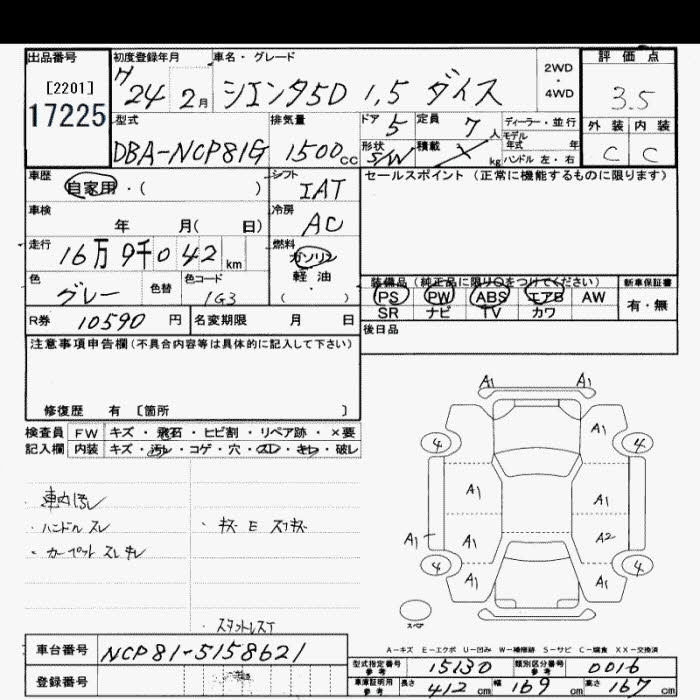 出品番号 [2201] 17225
初度登録年月 H24 2月
車名・グレード シエンタ5D 1.5 ダイス
2WD ・ 4WD
評価点 3.5
外装 C 内装 C
型式 DBA-NCP81G
排気量 1500cc
ドア 5 定員 7人
形状 S/W 積載 kg
ディーラー・並行
モデル年式 年
ハンドル 左・右
車歴 自家用・( )
シフト IAT
セールスポイント (正常に機能するものに限ります)
車検 年 月( 日)
冷房 AC
走行 16万9千042km
燃料 ガソリン 軽油・( )
色 グレー 色替 色コード 1G3
装備品 (純正品に限り○をつけてください)
新車保証書 有・無
PS PW ABS エアB AW
SR ナビ TV カワ
R券 10590円 名変期限 月 日
後日品
注意事項申告欄(不具合内容等は具体的に記入して下さい)
修復歴 有 〔箇所 〕
検査員 FW キズ・飛石・ヒビ割・リペア跡・×要
記入欄 内装 キズ・汚レ・コゲ・穴・スレ・キレ・破レ
車内汚レ
・ハンドル スレ
・カーペット スレ キレ
・キズ E スリキズ
・スタットレスT
A1 A1
A1
4 4
A1 A1
A1 A1 A2
4 4
A1 A1
スペア
A-キズ E-エクボ U-凹み W-補修跡 S-サビ C-腐食 XX-交換済
車台番号 NCP81-5158621
登録番号
型式指定番号 参考 15130 類別区分番号 参考 0016
車庫証明用 参考 長さ 412cm 幅 169cm 高さ 167cm